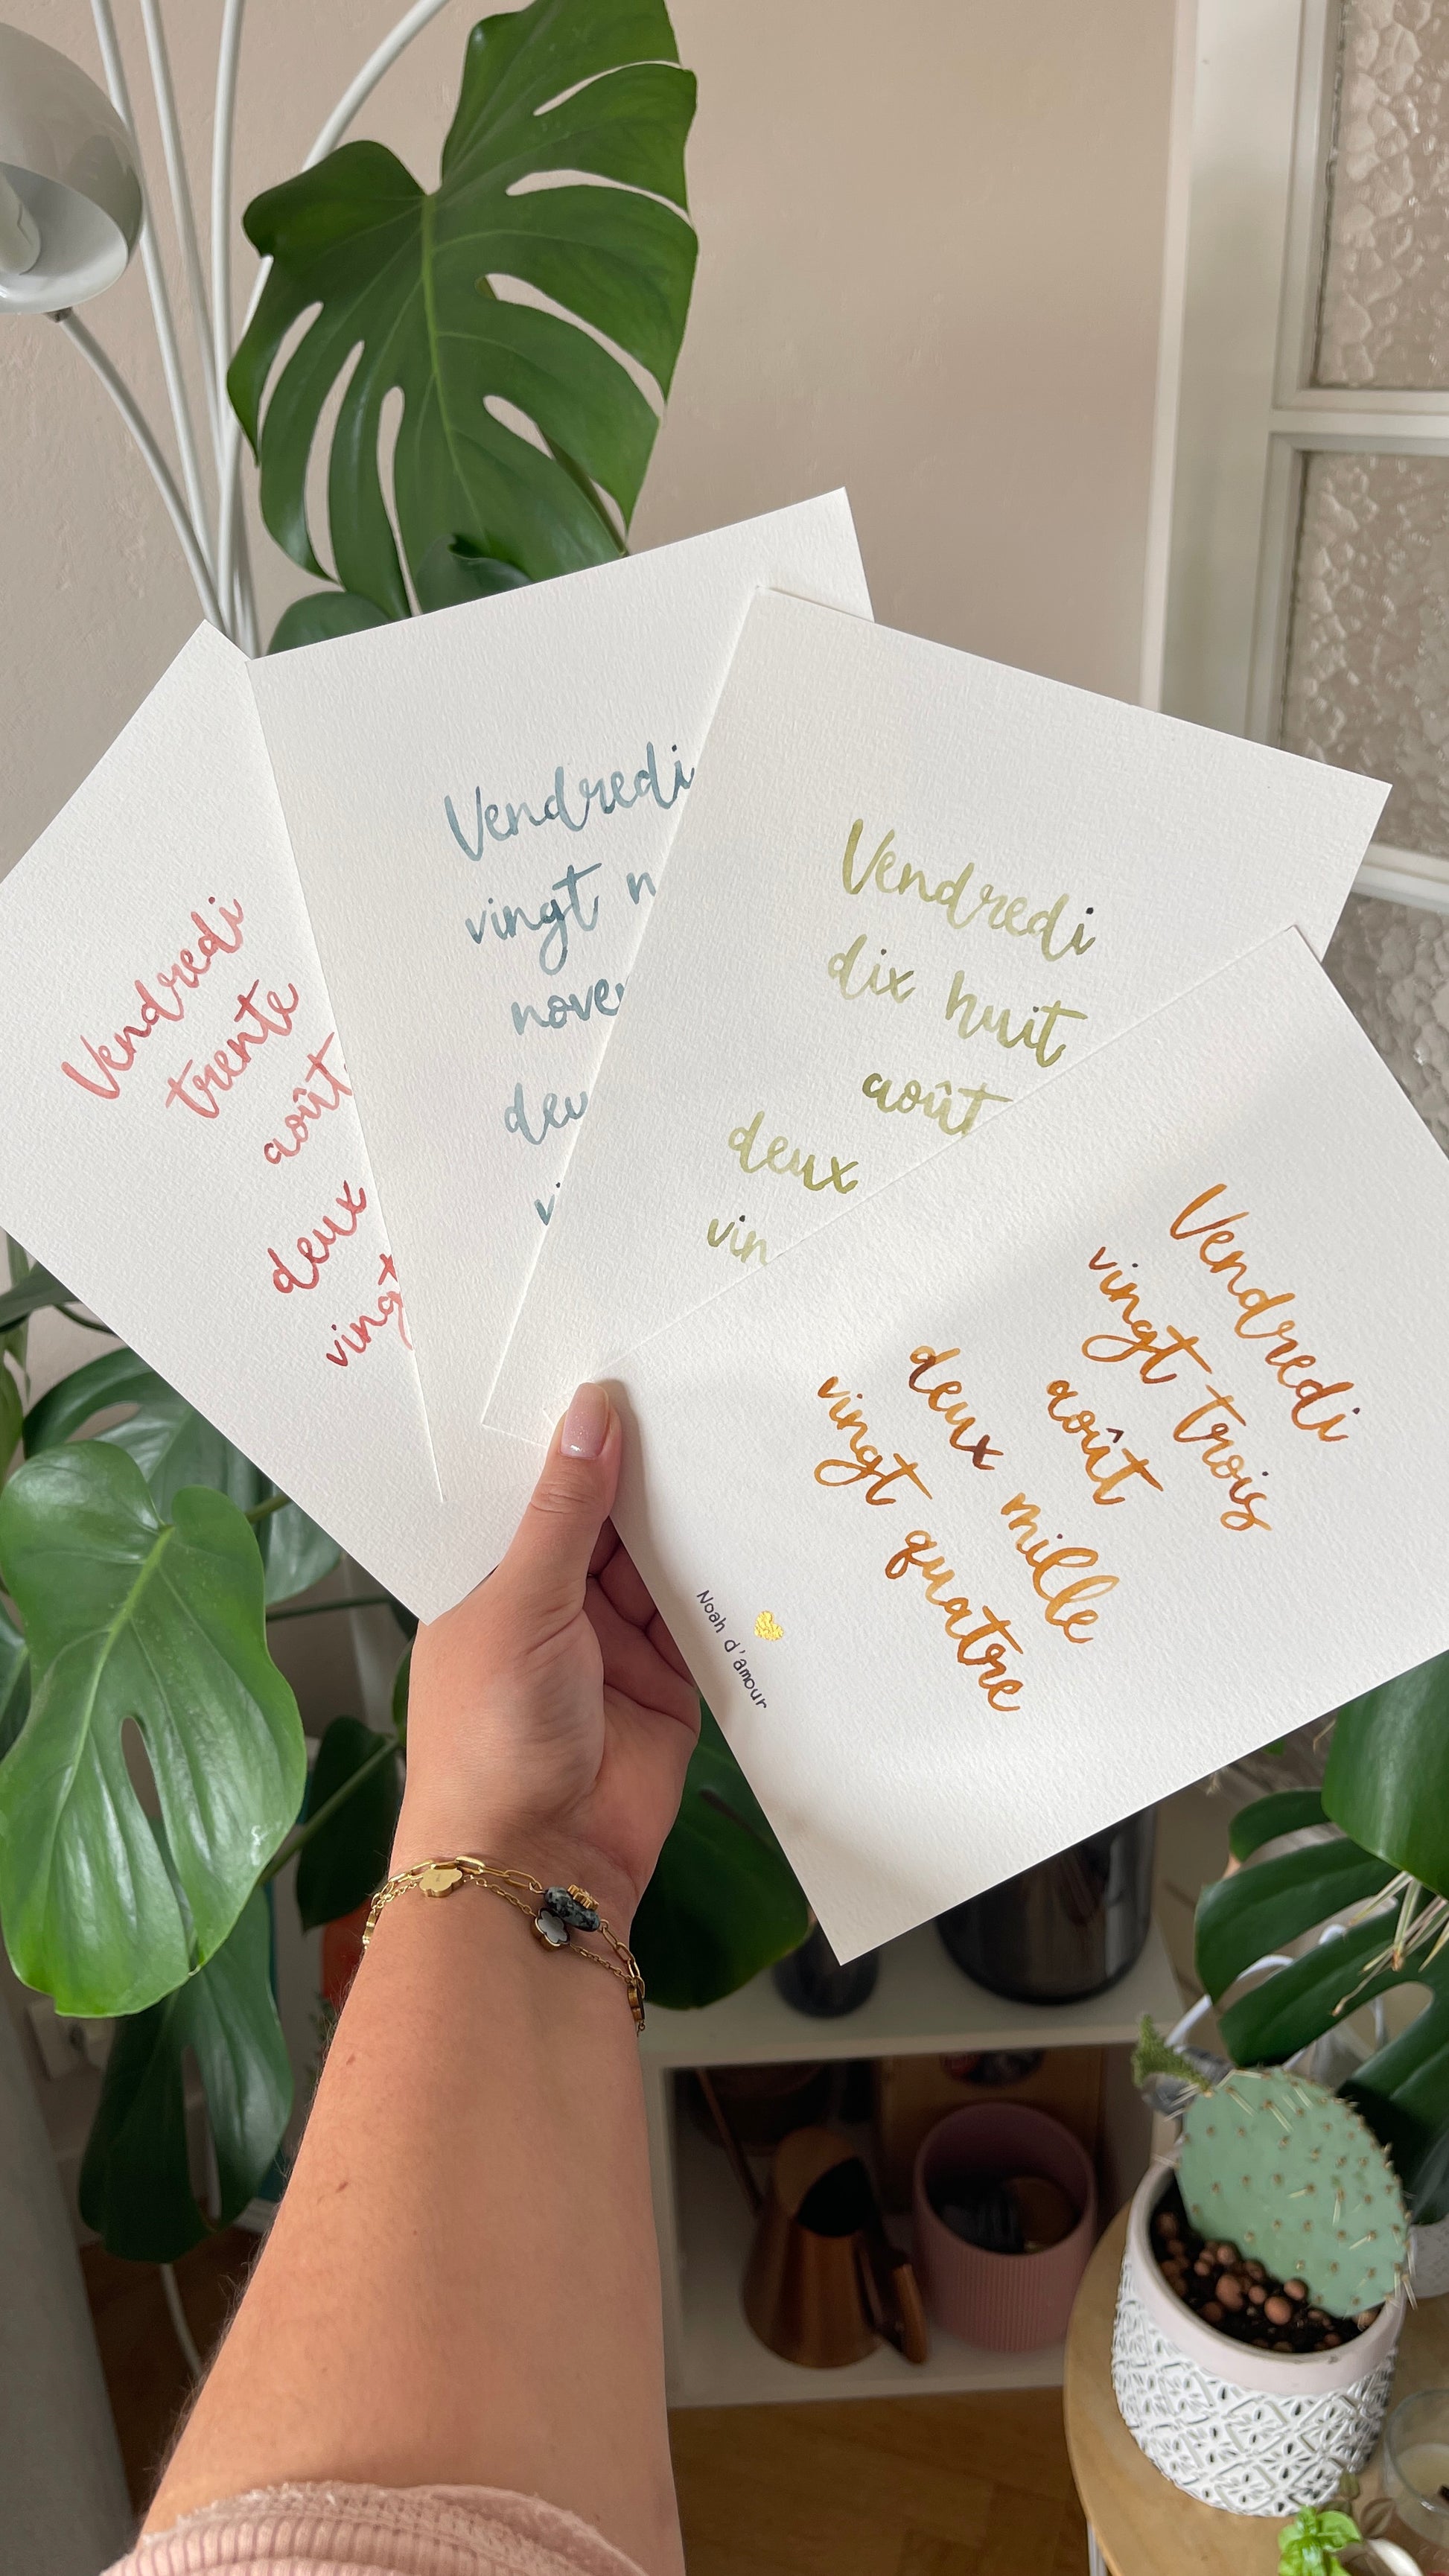 Vendredi
trente
août
deux
vingt
Vendredi
vingt
deux
Vendredi
dix huit
août
deux
Vendredi
vingt trois
août
deux mille
vingt quatre
Noah d'amour